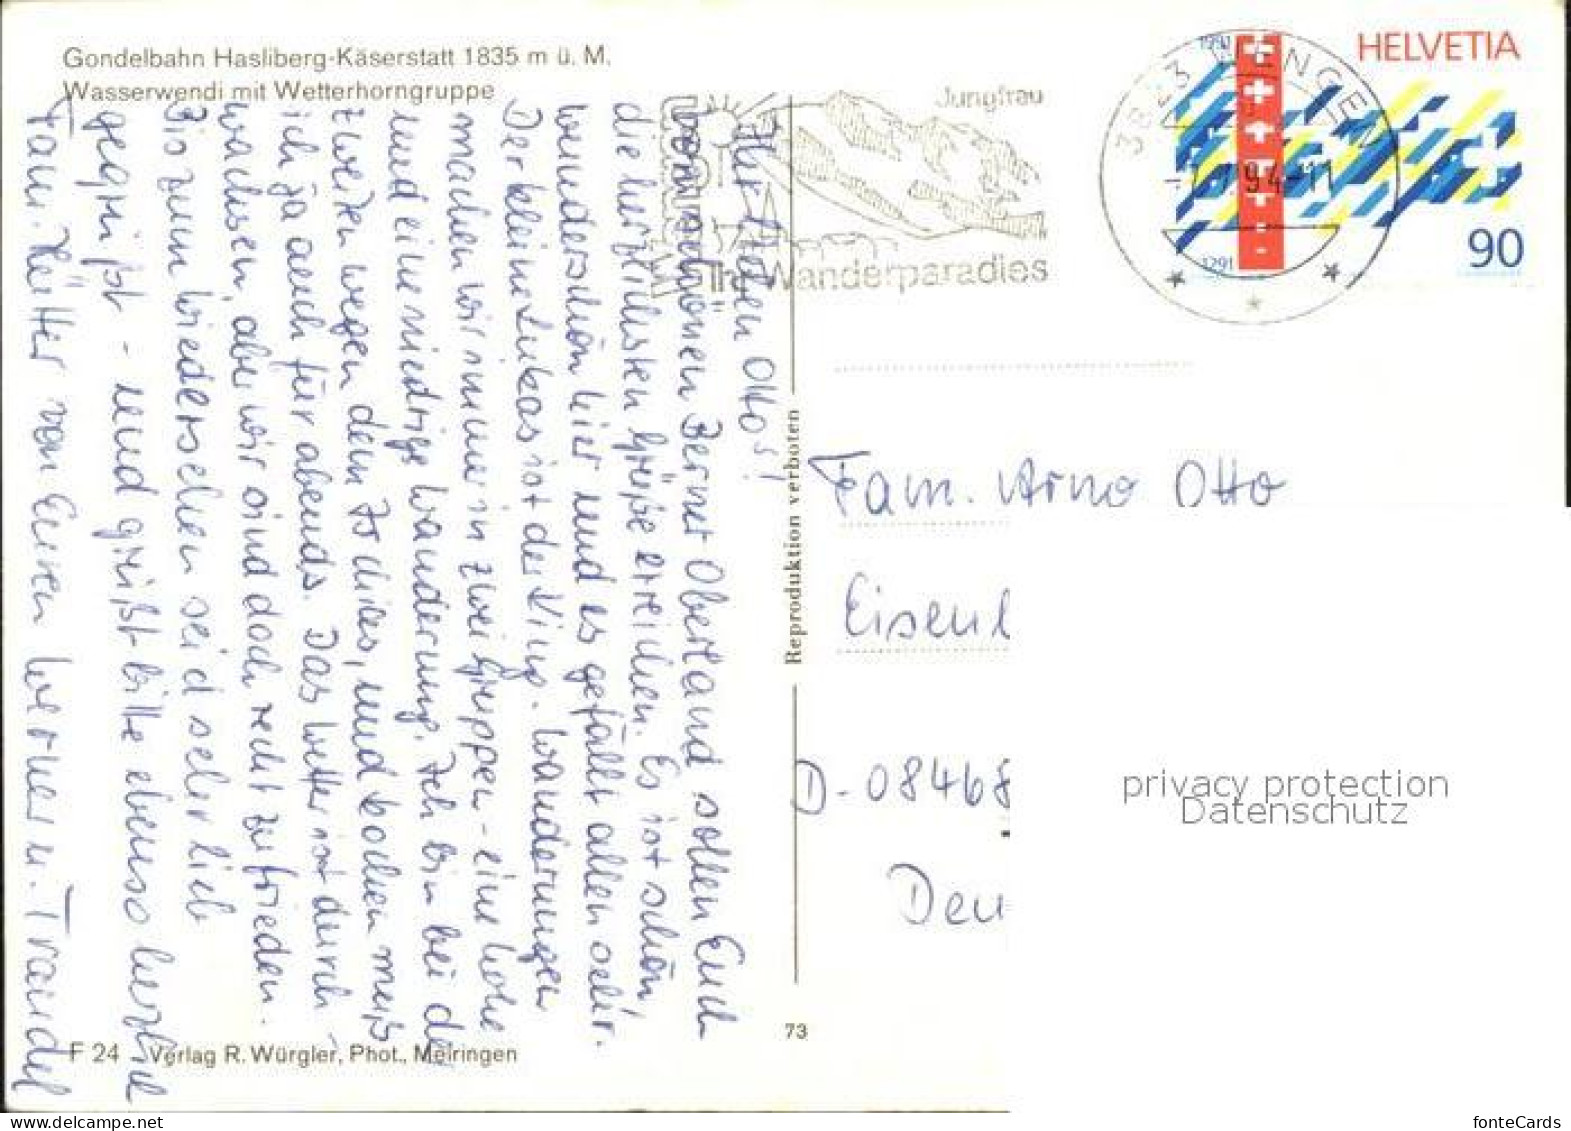 Gondelbahn Hasliberg-Käserstatt 1835 m ü. M.
Wasserwendi mit Wetterhorngruppe
Ihr lieben Otto's!
Vom schönen Berner Oberland sollen Euch
die herzlichsten Grüße erreichen. Es ist schön,
wunderschön hier und es gefällt allen sehr.
Der kleine Lukas ist der King. Wanderungen
machen wir immer in zwei Gruppen - eine hohe
und eine niedrige Wanderung. Ich bin bei der
zweiten wegen dem Ischies, und kochen muß
ich ja auch für abends. Das Wetter ist durch-
wachsen, aber wir sind doch recht zufrieden.
Bis zum Wiedersehen seid sehr lieb
gegrüßt - und grüßt bitte ebenso herzlich
Fam. von Euren Werner u. Traudel
F 24 Verlag R. Würgler, Phot., Meiringen
73
Reproduktion verboten
WENGEN
Jungfrau
Ihr Wanderparadies
3823 WENGEN
94-11
HELVETIA
1991
1291
90
Fam. Arno Otto
Eisen
D-08468
Deu
privacy protection
Datenschutz
www.delcampe.net
fonteCards